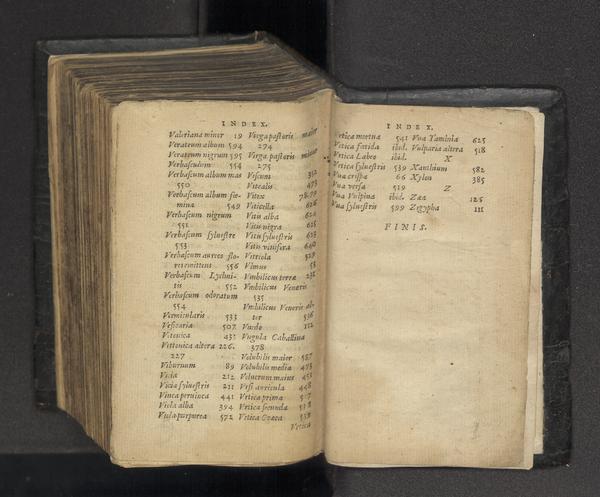 INDEX.
Valeriana minor 19
Veratrum album 594
Veratrum nigrum 595
Verbasculum 554
Verbascum album mas
550
Verbascum album fœ-
mina 549
Verbascum nigrum
551
Verbascum sylvestre
553
Verbascum aureos flo-
res emittens 556
Verbascum Lychni-
tis 552
Verbascum odoratum
554
Vermicularis 533
Vesicaria 507
Vetonica 431
Vettonica altera 226.
227
Viburnum 89
Vicia 212
Vicia sylvestris 211
Vinca pervinca 441
Viola alba 394
Viola purpurea 572
Virga pastoris maior
274
Virga pastoris minor
275
Viscum 352
Vitealis 473
Vitex
Viticella 626
Vitis alba 624
Vitis nigra 625
Vitis sylvestris 623
Vitis vinifera 640
Vitriola 529
Vlmus 58
Vmbilicus terræ 232
Vmbilicus Veneris
535
Vmbilicus Veneris al-
ter 536
Vnedo 112
Vngula Caballina
378
Volubilis maior 587
Volubilis media 473
Volucrum maius 451
Vrsi auricula 448
Vrtica prima 537
Vrtica secunda 538
Vrtica Græca 538
Vrtica
INDEX.
Vrtica mortua 541
Vrtica fœtida ibid.
Vrtica Labeo ibid.
Vrtica sylvestris 539
Vua crispa 66
Vua versa 519
Vua Vulpina ibid.
Vua sylvestris 599
Vua Taminia 625
Vulparia altera 518
X
Xanthium 582
Xylon 385
Z
Zea 125
Zegypha 111
FINIS.